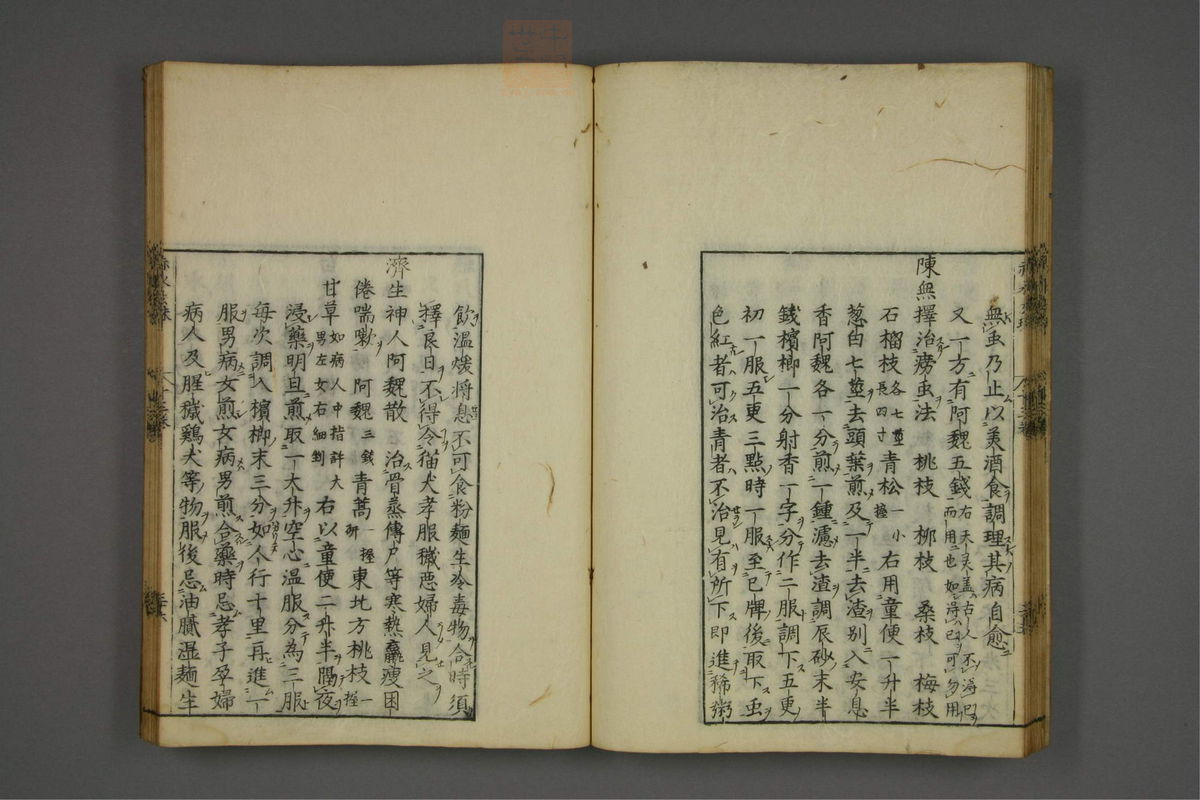 無虫乃止以美酒食調理其病自愈
又一方有阿魏五錢右天灵盖古人不得已而用之也如得已可勿用
陳無擇治癆虫法 桃枝 柳枝 桑枝 梅枝
石榴枝各七莖長四寸青松一小握右用童便一升半
葱白七莖去頭葉煎及一半去渣別入安息
香阿魏各一分煎一鍾濾去渣調辰砂末半
錢檳榔一分射香一字分作二服調下五更
初一服五更三點時一服至巳牌後取下虫
色紅者可治青者不治見有所下即進稀粥
飲溫煖將息不可食粉麺生冷毒物合時須
擇良日不得令猫犬孝服穢悪婦人見之
濟生神人阿魏散 治骨蒸傳尸等寒熱羸瘦困
倦喘嗽 阿魏三錢青蒿一握研東北方桃枝一握
甘草如病人中指許大男左女右細剉右以童便二升半隔夜
浸藥明旦煎取一大升空心温服分為三服
每次調入檳榔末三分如人行十里再進一
服男病女煎女病男煎合藥時忌孝子孕婦
病人及腥穢鷄犬等物服後忌油膩湿麺生